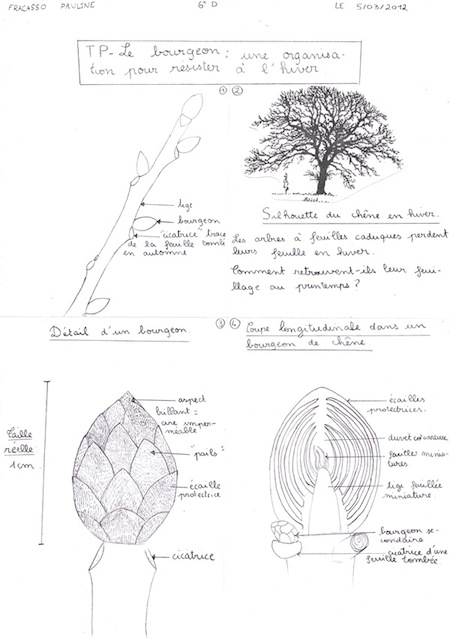 FRACASSO PAULINE 6° D LE 5/03/2012
TP- Le bourgeon : une organisa-
tion pour resister à l'hiver
① ②
tige
bourgeon
"cicatrice" trace
de la feuille tombé
en automne
Silhouette du chêne en hiver.
Les arbres à feuilles caduques perdent
leurs feuille en hiver.
Comment retrouvent-ils leur feui-
llage au printemps ?
Détail d'un bourgeon
③ ④
Coupe longitudinale dans un
bourgeon de chêne
Taille
réelle
1cm
aspect
brillant =
cire imper-
méable
"poils"
écaille
protectrice
cicatrice
écailles
protectrices.
duvet cotonneux
feuille minia-
tures
tige feuillée
miniature
bourgeon se-
condaire
cicatrice d'une
feuille tombée